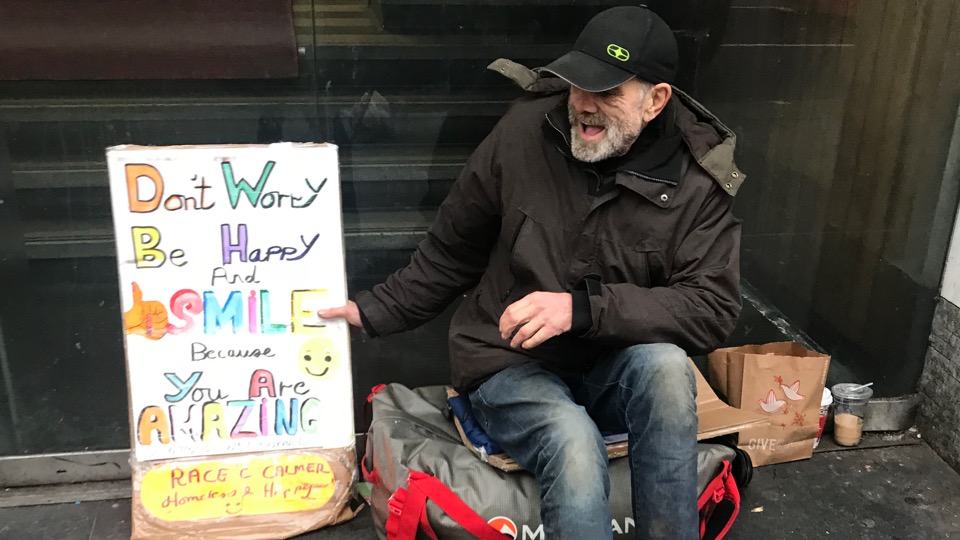 Don't Worry
Be Happy
And
SMILE
Because
You Are
AMAZING
RACE C CALMER
Homeless & Happy
GIVE